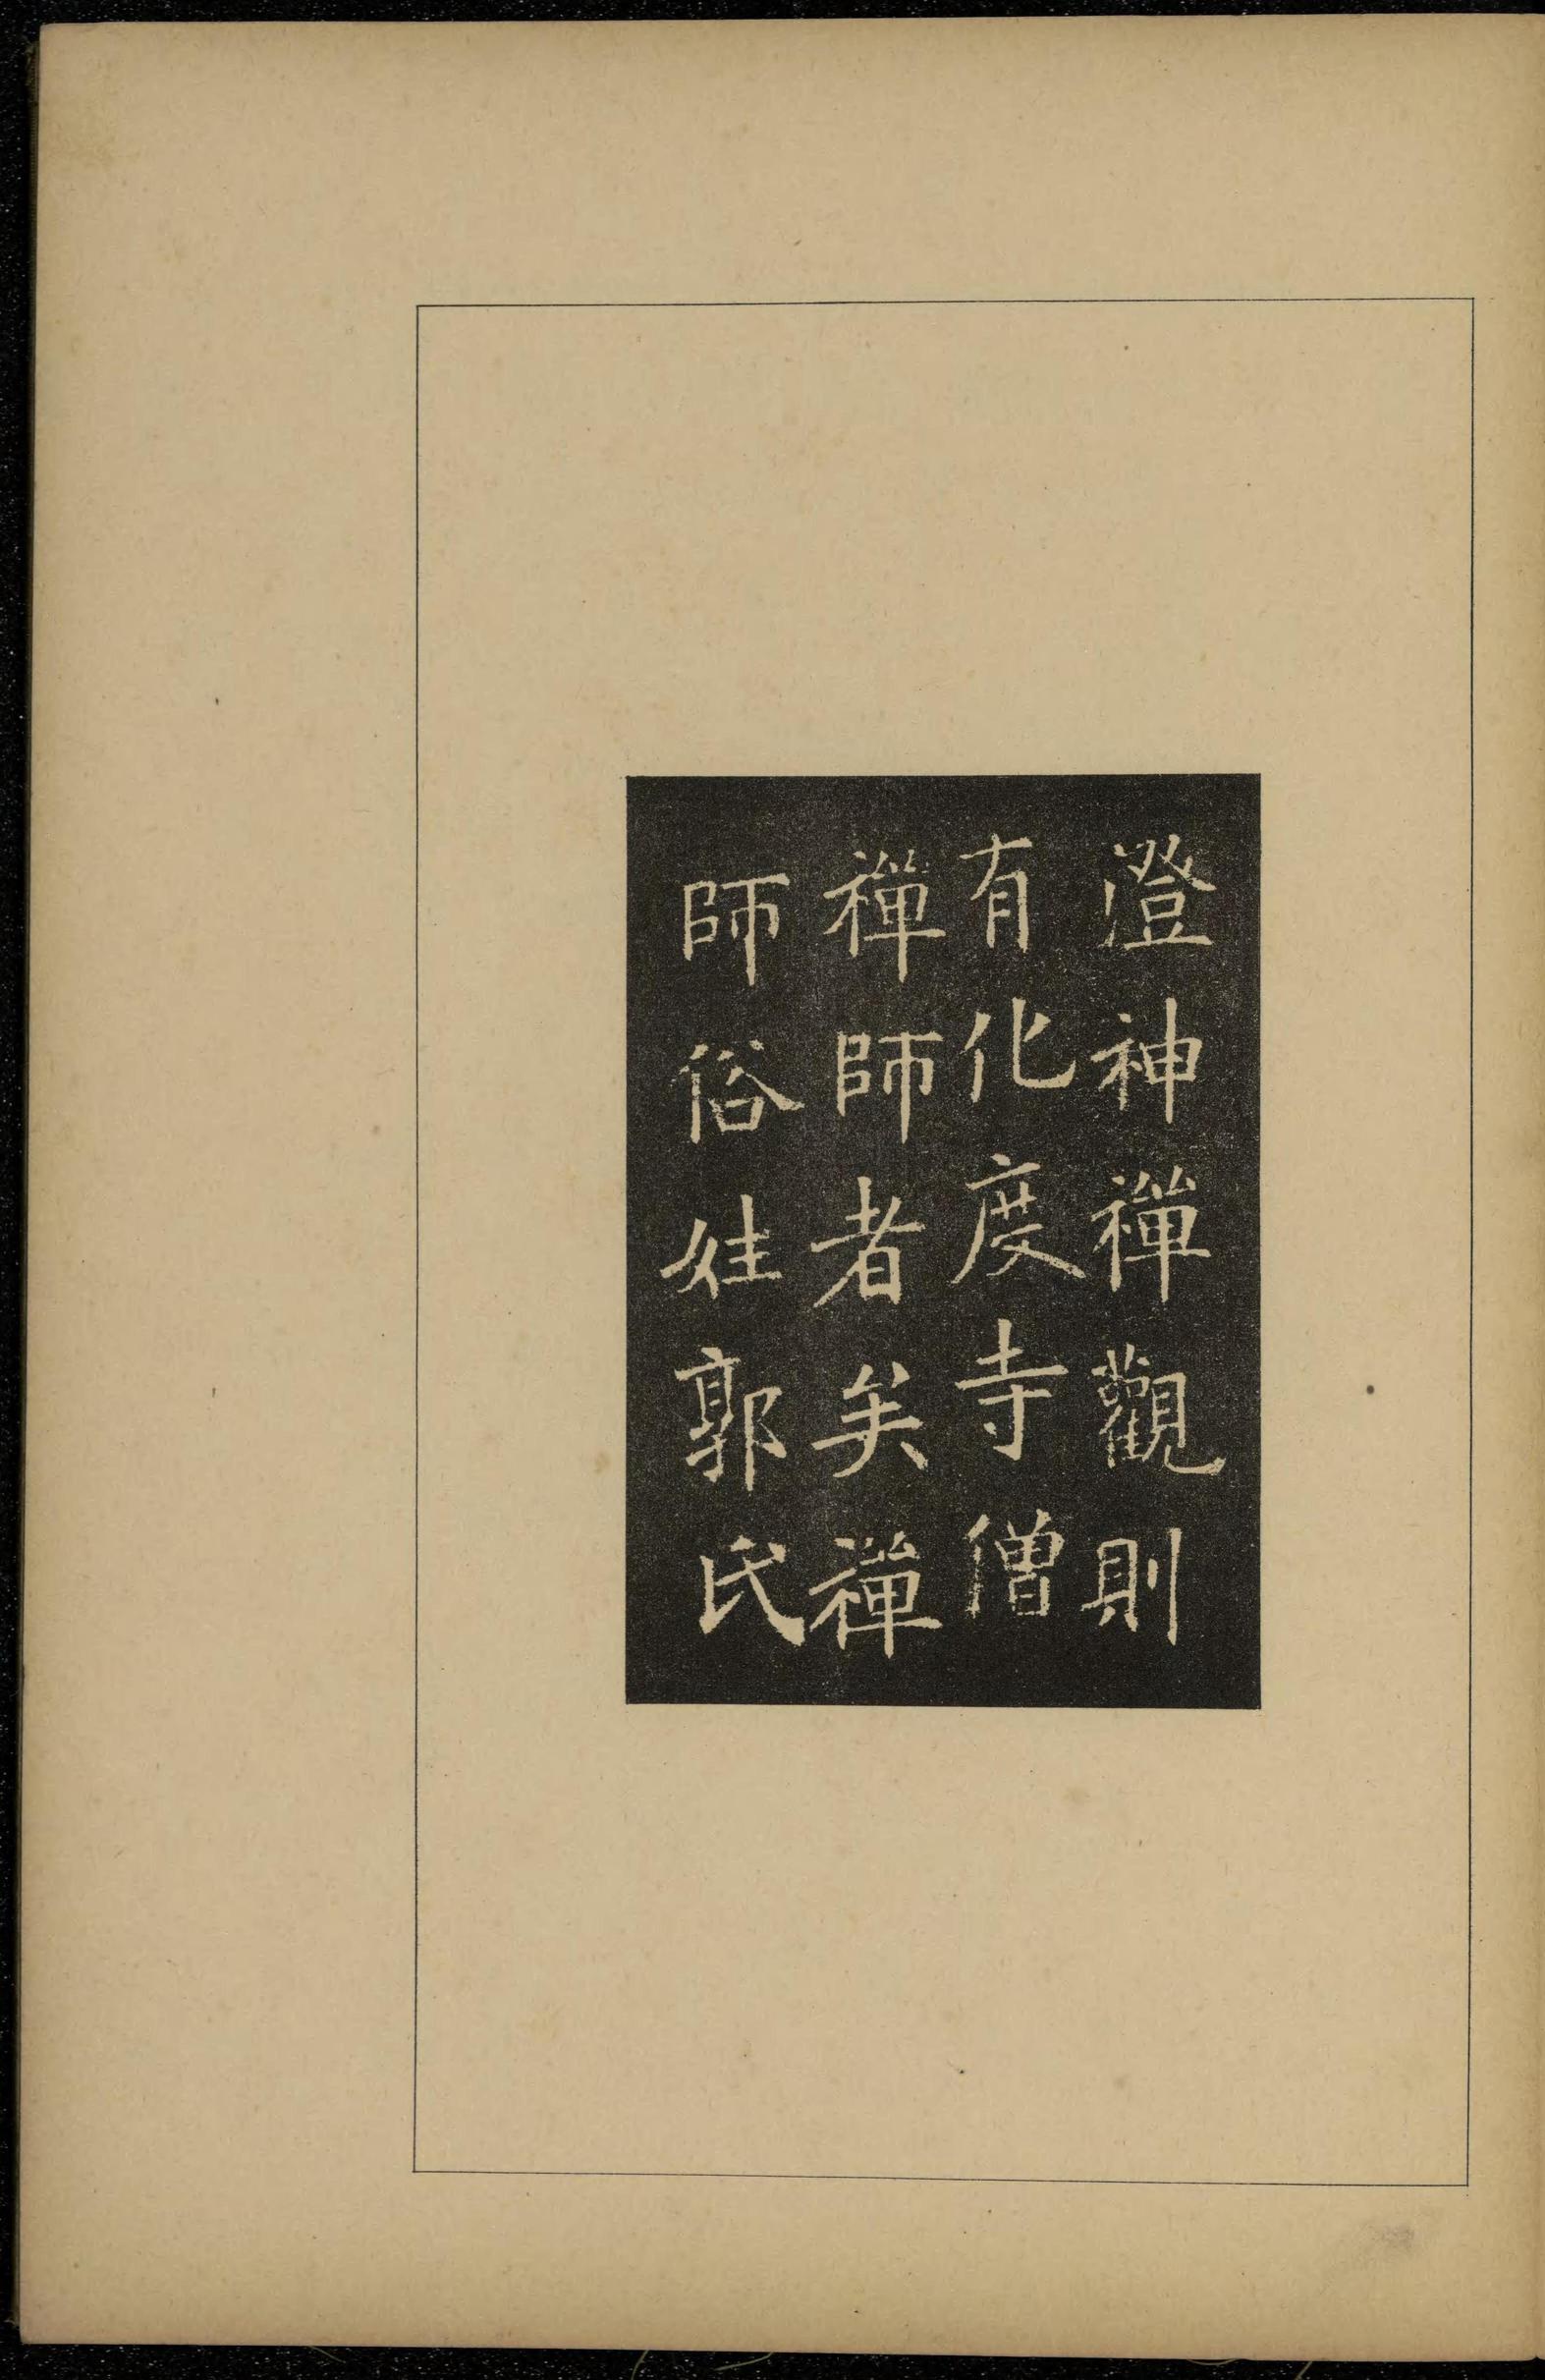 澄神禪觀則
有化度寺僧
禪師者矣禪
師俗姓郭氏